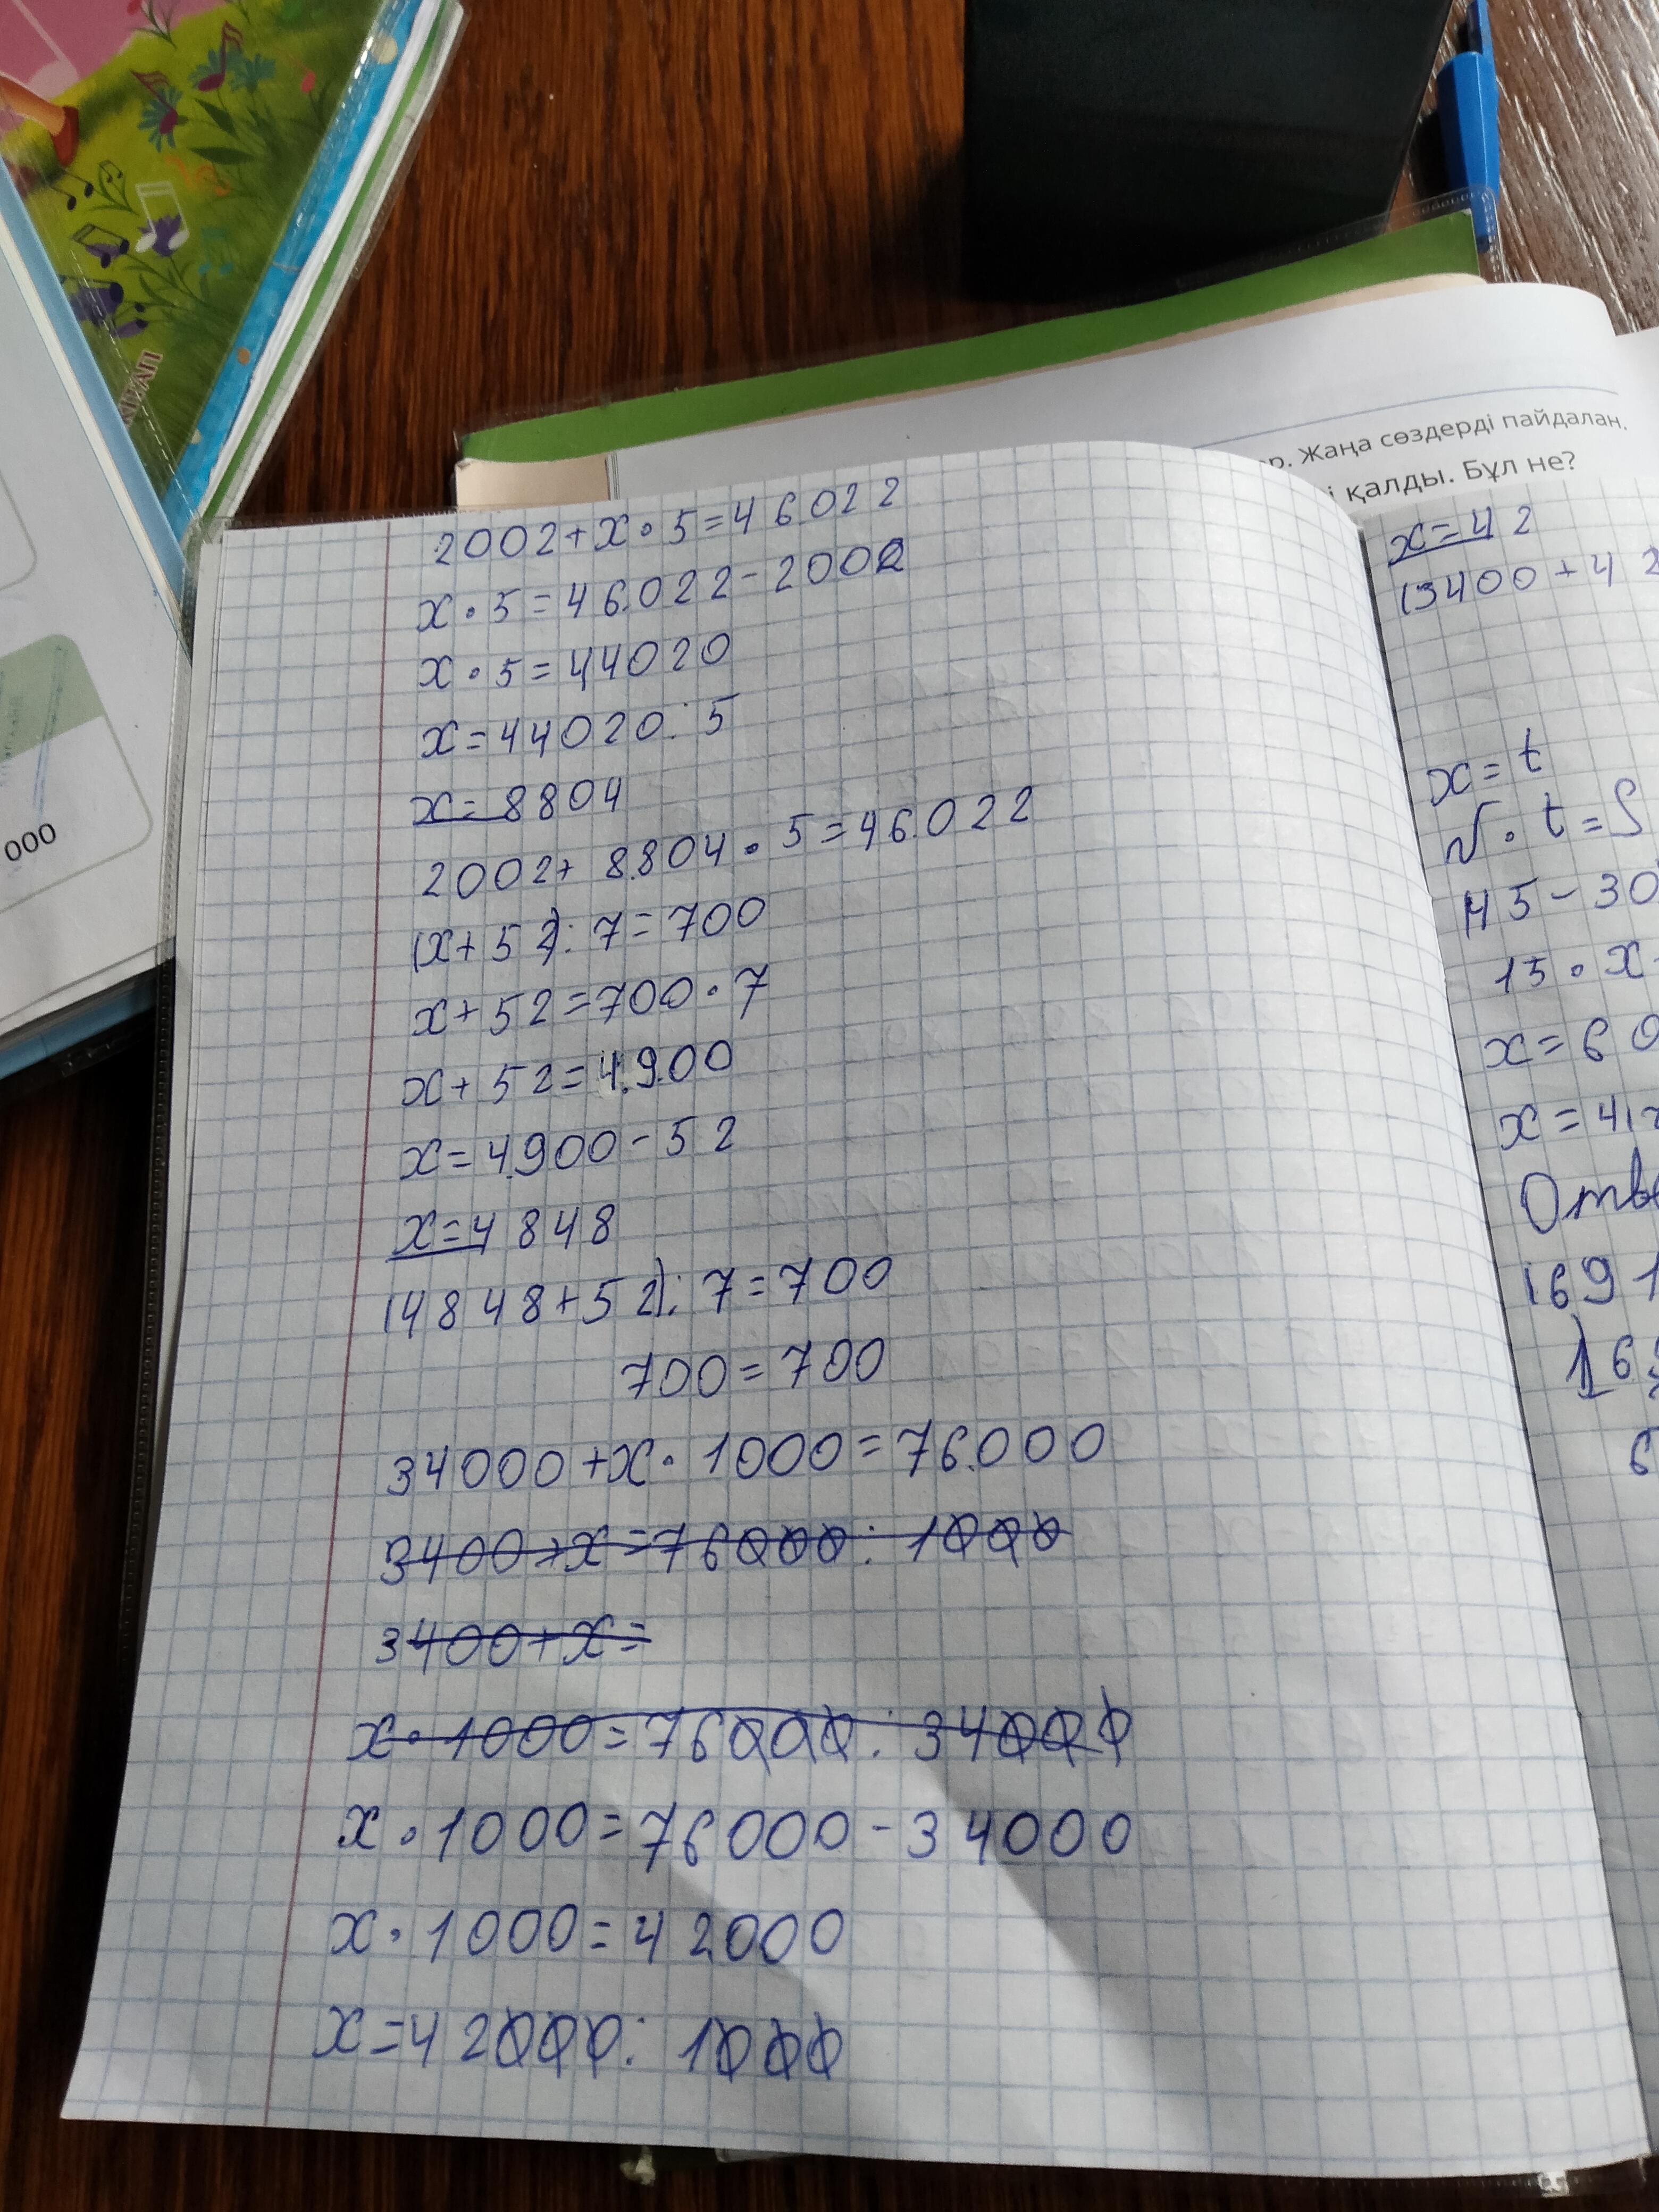 КІТАП
000
р. Жаңа сөздерді пайдалан.
і қалды. Бұл не?
2002+x•5=46022
x•5=46.022-2002
x•5=44020
x=44020:5
x=8804
2002+8.804•5=46.022
(x+52):7=700
x+52=700•7
x+52=4.900
x=4.900-52
x=4848
(4848+52):7=700
700=700
34000+x•1000=76.000
3400+x=76000:1000
3400+x=
x•1000=76000:34000
x•1000=76000-34000
x•1000=42000
x=42000:1000
x=42
(3400+42
x=t
v•t=S
45-30
15•x
x=60
x=4
Отве
1691
16
6